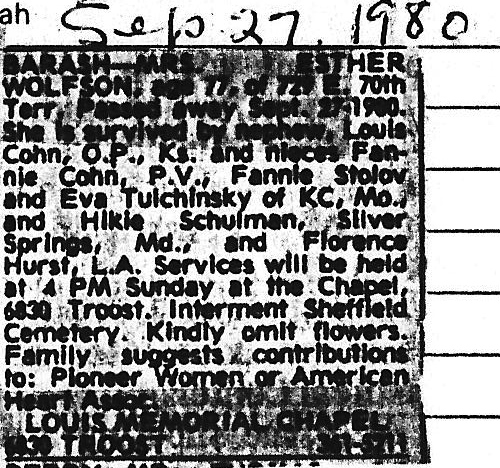 ah
Sep 27, 1980
BARASH—MRS. ESTHER
WOLFSON, age 77, of 729 E. 70th
Terr. Passed away Sept. 27-1980.
She is survived by nephew, Louis
Cohn, O.P., Ks. and nieces Fan-
nie Cohn, P.V., Fannie Stolov
and Eva Tulchinsky of KC, Mo.,
and Hikie Schulman, Silver
Springs, Md., and Florence
Hurst, L.A. Services will be held
at 4 PM Sunday at the Chapel,
6830 Troost. Interment Sheffield
Cemetery. Kindly omit flowers.
Family suggests contributions
to: Pioneer Women or American
Heart Assoc.
LOUIS MEMORIAL CHAPEL
6830 TROOST 361-5211